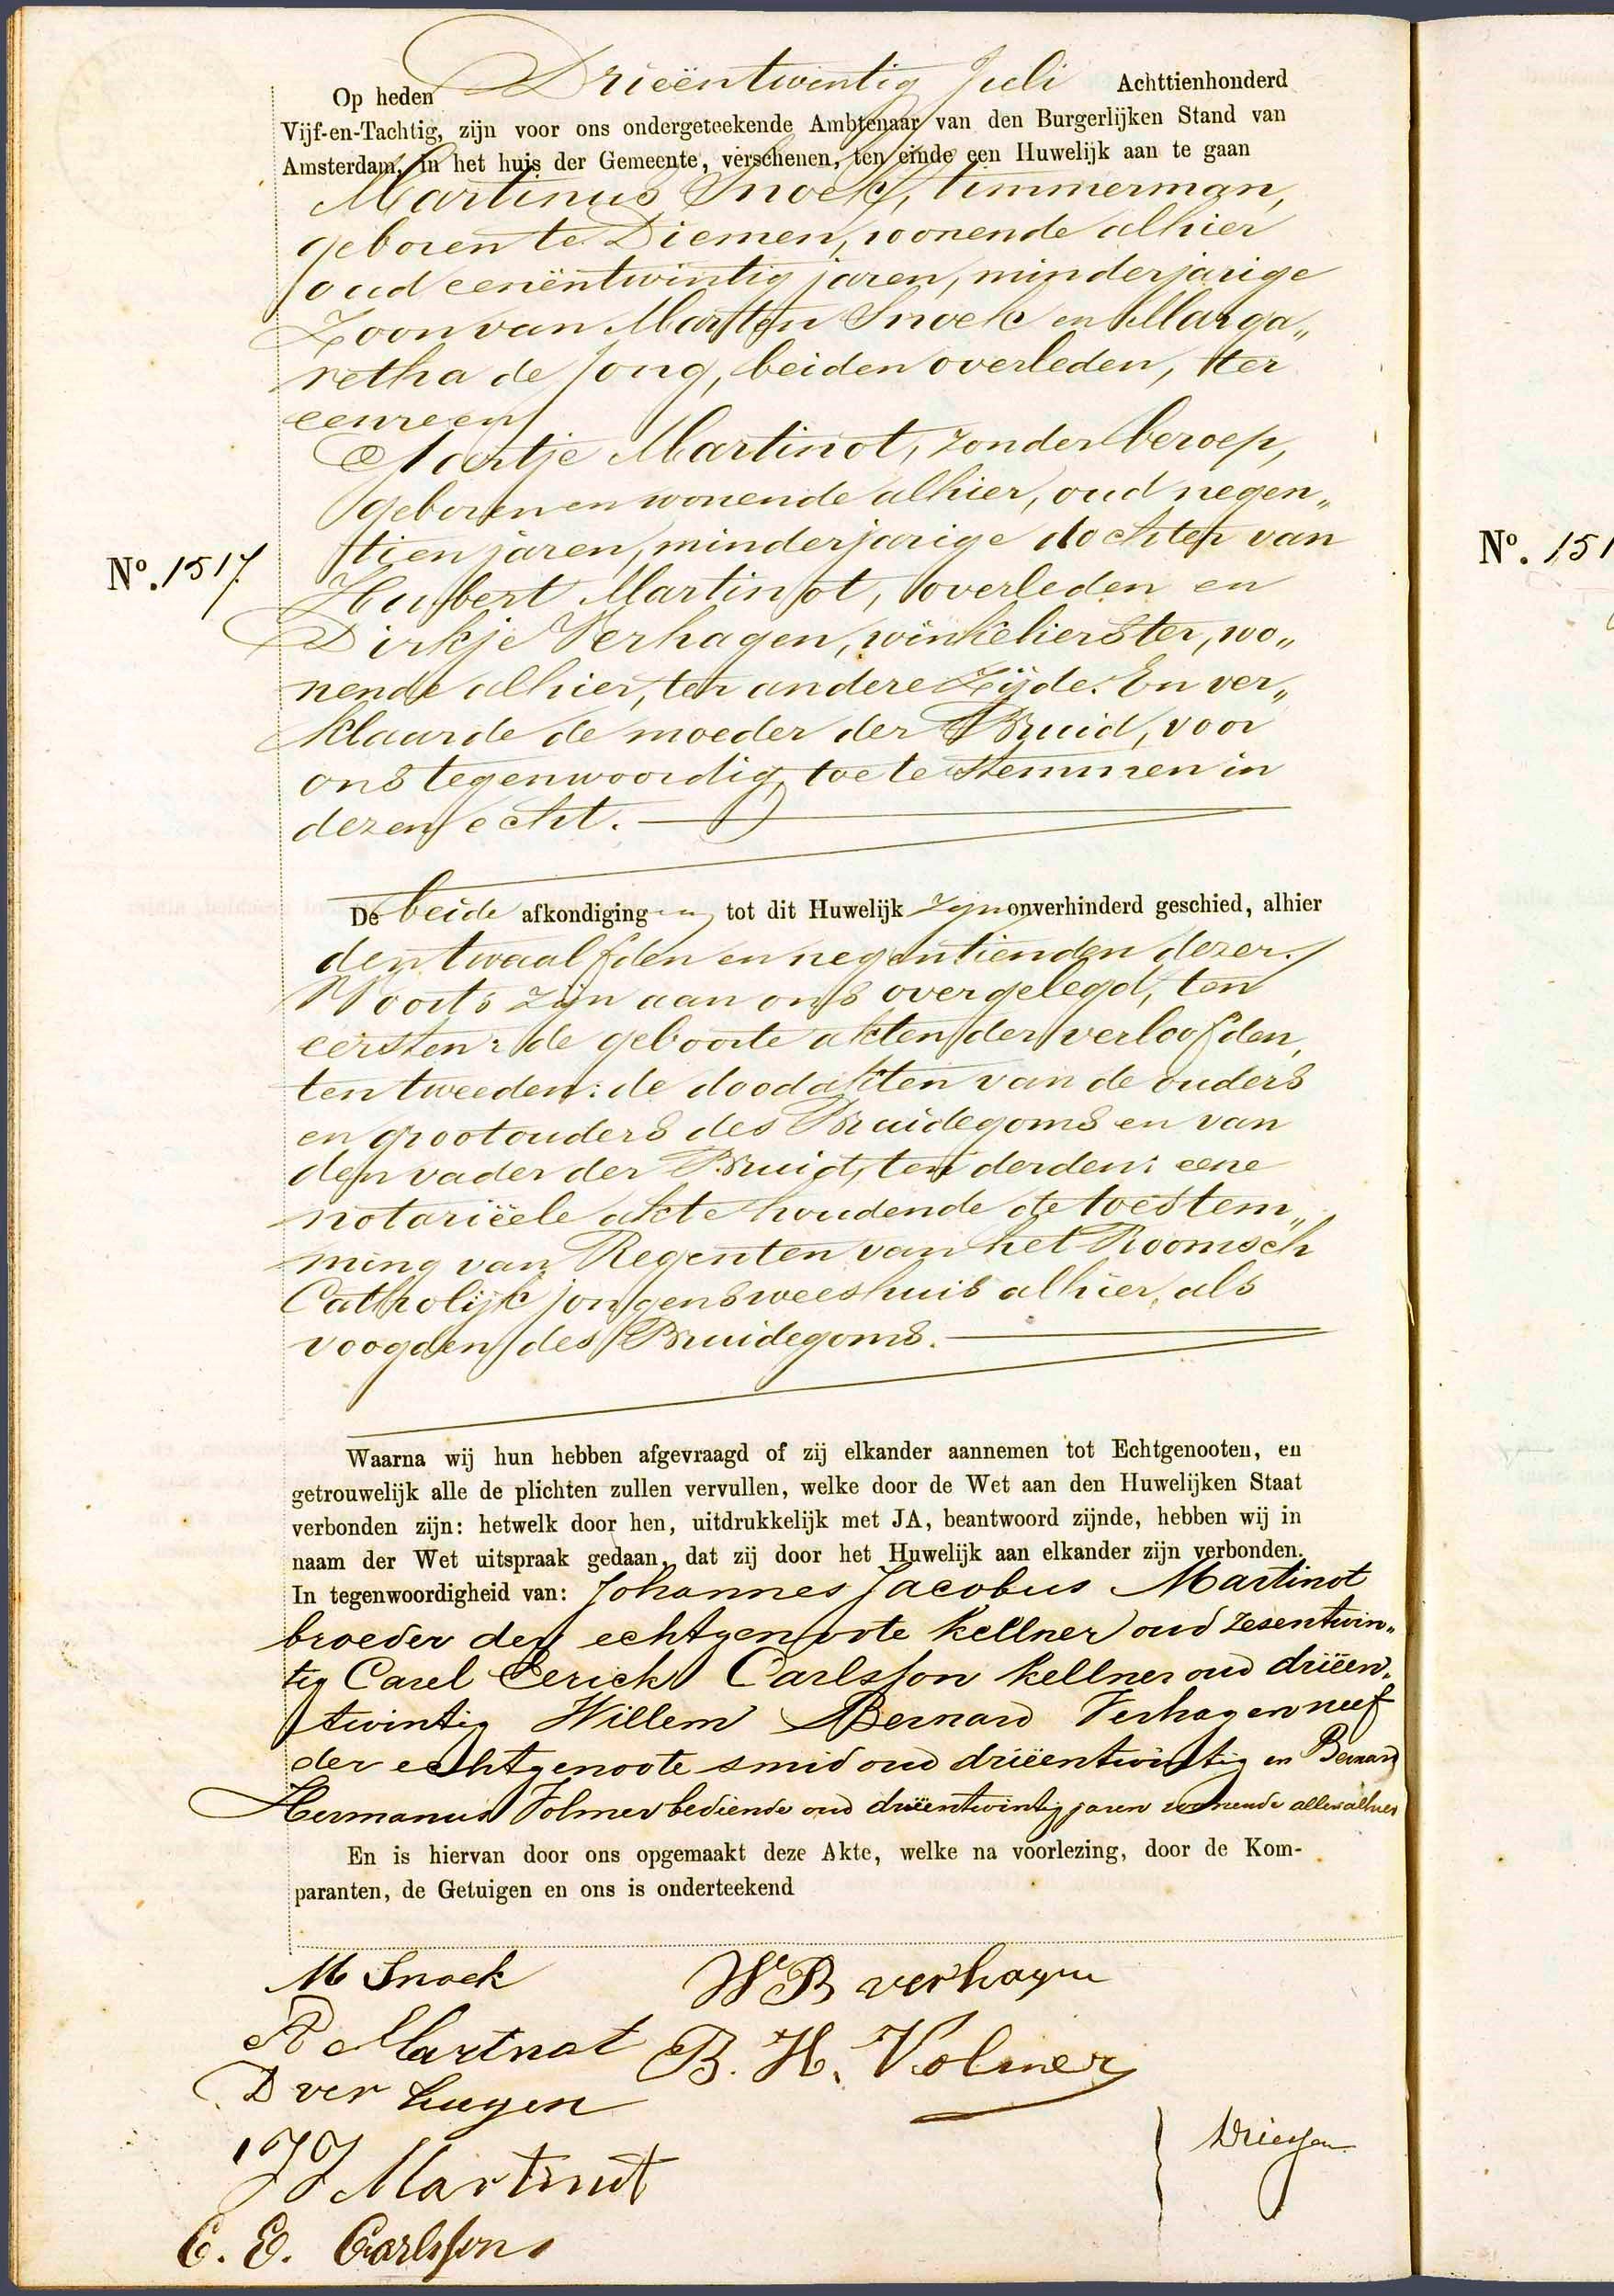 Op heden Drieëntwintig Juli Achttienhonderd
Vijf-en-Tachtig, zijn voor ons ondergeteekende Ambtenaar van den Burgerlijken Stand van
Amsterdam, in het huis der Gemeente, verschenen, ten einde een Huwelijk aan te gaan
Martinus Snoek, timmerman,
geboren te Diemen, wonende alhier
oud eenëntwintig jaren, minderjarige
Zoon van Marten Snoek en Marga„
retha de Jong, beiden overleden, ter
eenre en
Aartje Martinot, zonder beroep,
geboren en wonende alhier, oud negen„
tien jaren, minderjarige dochter van
No. 1517.
Huibert Martinot, overleden en
Dirkje Verhagen, winkelierster, wo„
nende alhier, ter andere Zijde. En ver„
klaarde de moeder der Bruid, voor
ons tegenwoordig, toe te stemmen in
dezen echt.
De beide afkondigingen tot dit Huwelijk zijn onverhinderd geschied, alhier
den twaalfden en negentienden dezer.
Voorts zijn aan ons overgelegd, ten
eersten: de geboorte akten der verloofden,
ten tweeden: de doodakten van de ouders
en grootouders des Bruidegoms en van
den vader der Bruid, ten derden: eene
notariëele akte houdende de toestem„
ming van Regenten van het Roomsch
Catholijk jongensweeshuis alhier, als
voogden des Bruidegoms.
Waarna wij hun hebben afgevraagd of zij elkander aannemen tot Echtgenooten, en
getrouwelijk alle de plichten zullen vervullen, welke door de Wet aan den Huwelijken Staat
verbonden zijn: hetwelk door hen, uitdrukkelijk met JA, beantwoord zijnde, hebben wij in
naam der Wet uitspraak gedaan, dat zij door het Huwelijk aan elkander zijn verbonden.
In tegenwoordigheid van: Johannes Jacobus Martinot
broeder der echtgenoote kellner oud zesentwin„
tig Carel Eerick Carlsson kellner oud drieën„
twintig Willem Bernard Verhagen neef
der echtgenoote smid oud drieëntwintig en Bernard
Hermanus Volmer bediende oud drieëntwintig jaren wonende allen alhier
En is hiervan door ons opgemaakt deze Akte, welke na voorlezing, door de Kom-
paranten, de Getuigen en ons is onderteekend
M Snoek
W B verhagen
A Martnot
B. H. Volmer
D ver hagen
Driessen
J J Martinot
C. E. Carlsson
No. 151